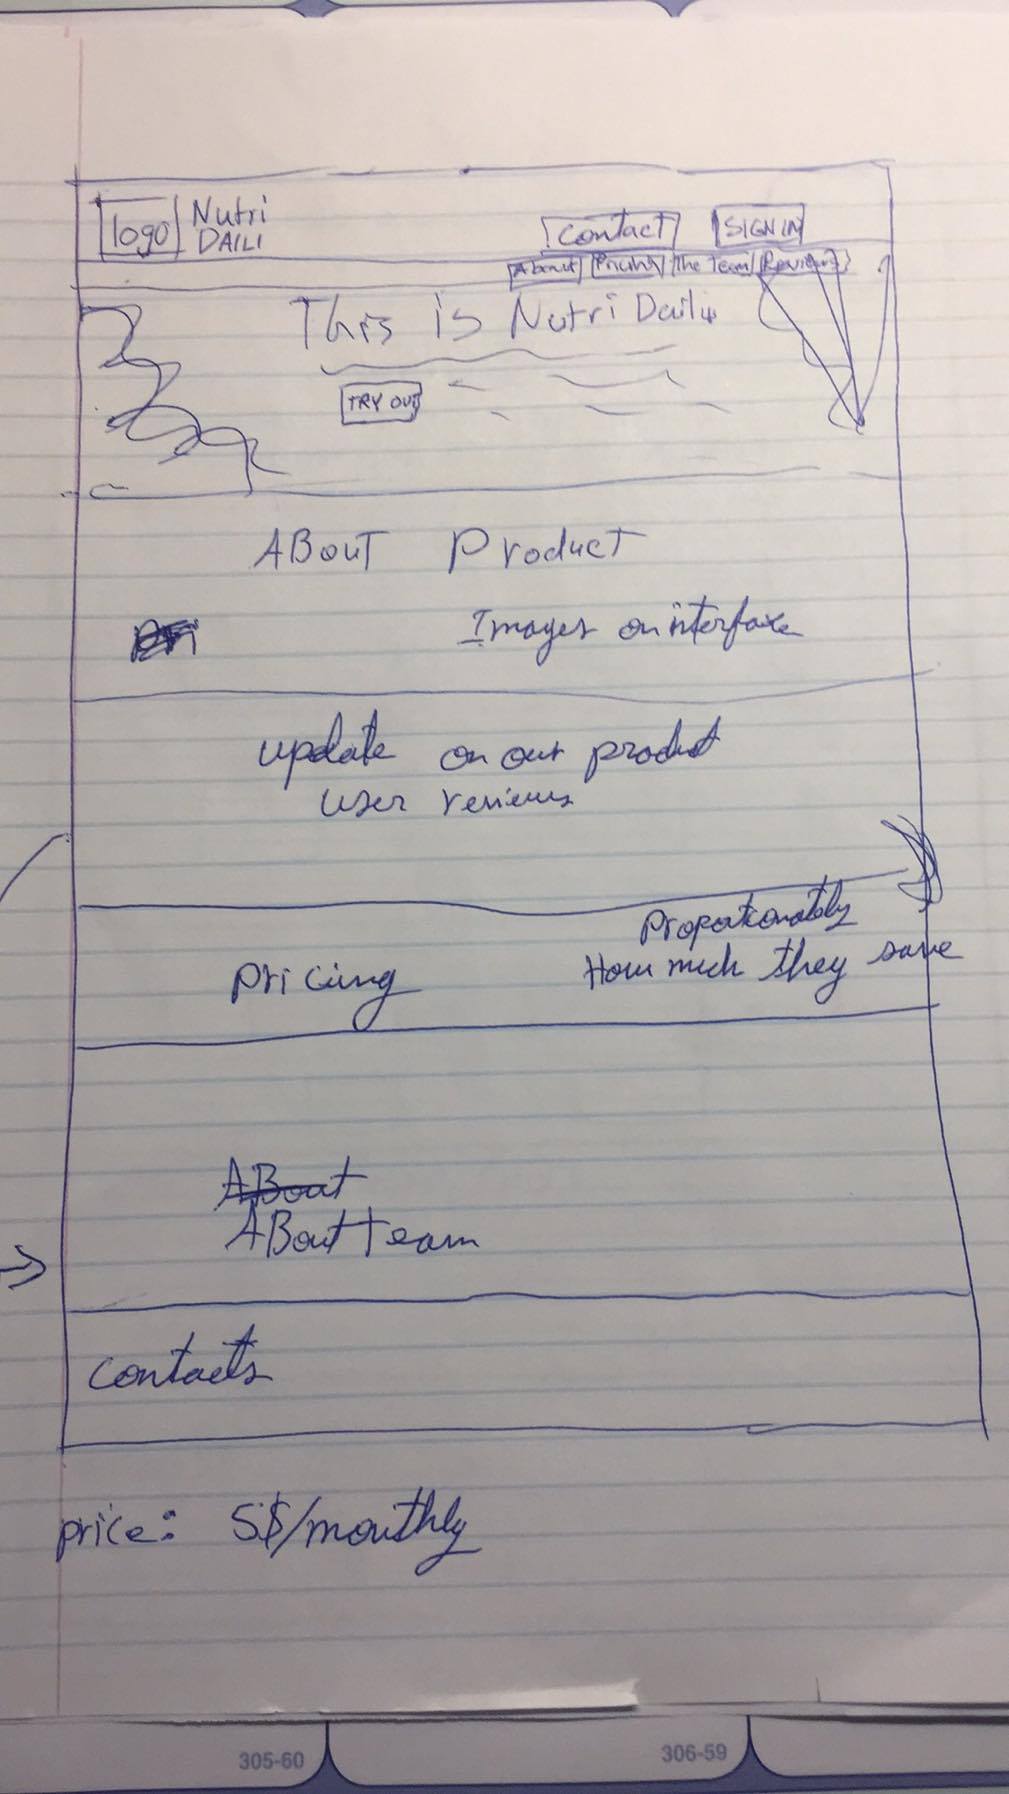 logo Nutri
DAILI
Contact SIGN IN
About Pricing The Team Reviews
This is Nutri Daili
TRY OUT
ABOUT Product
Images on interface
update on our product
user reviews
Proportionately
pricing How much they save
ABout
ABout team
contacts
price: 5$/monthly
305-60 306-59